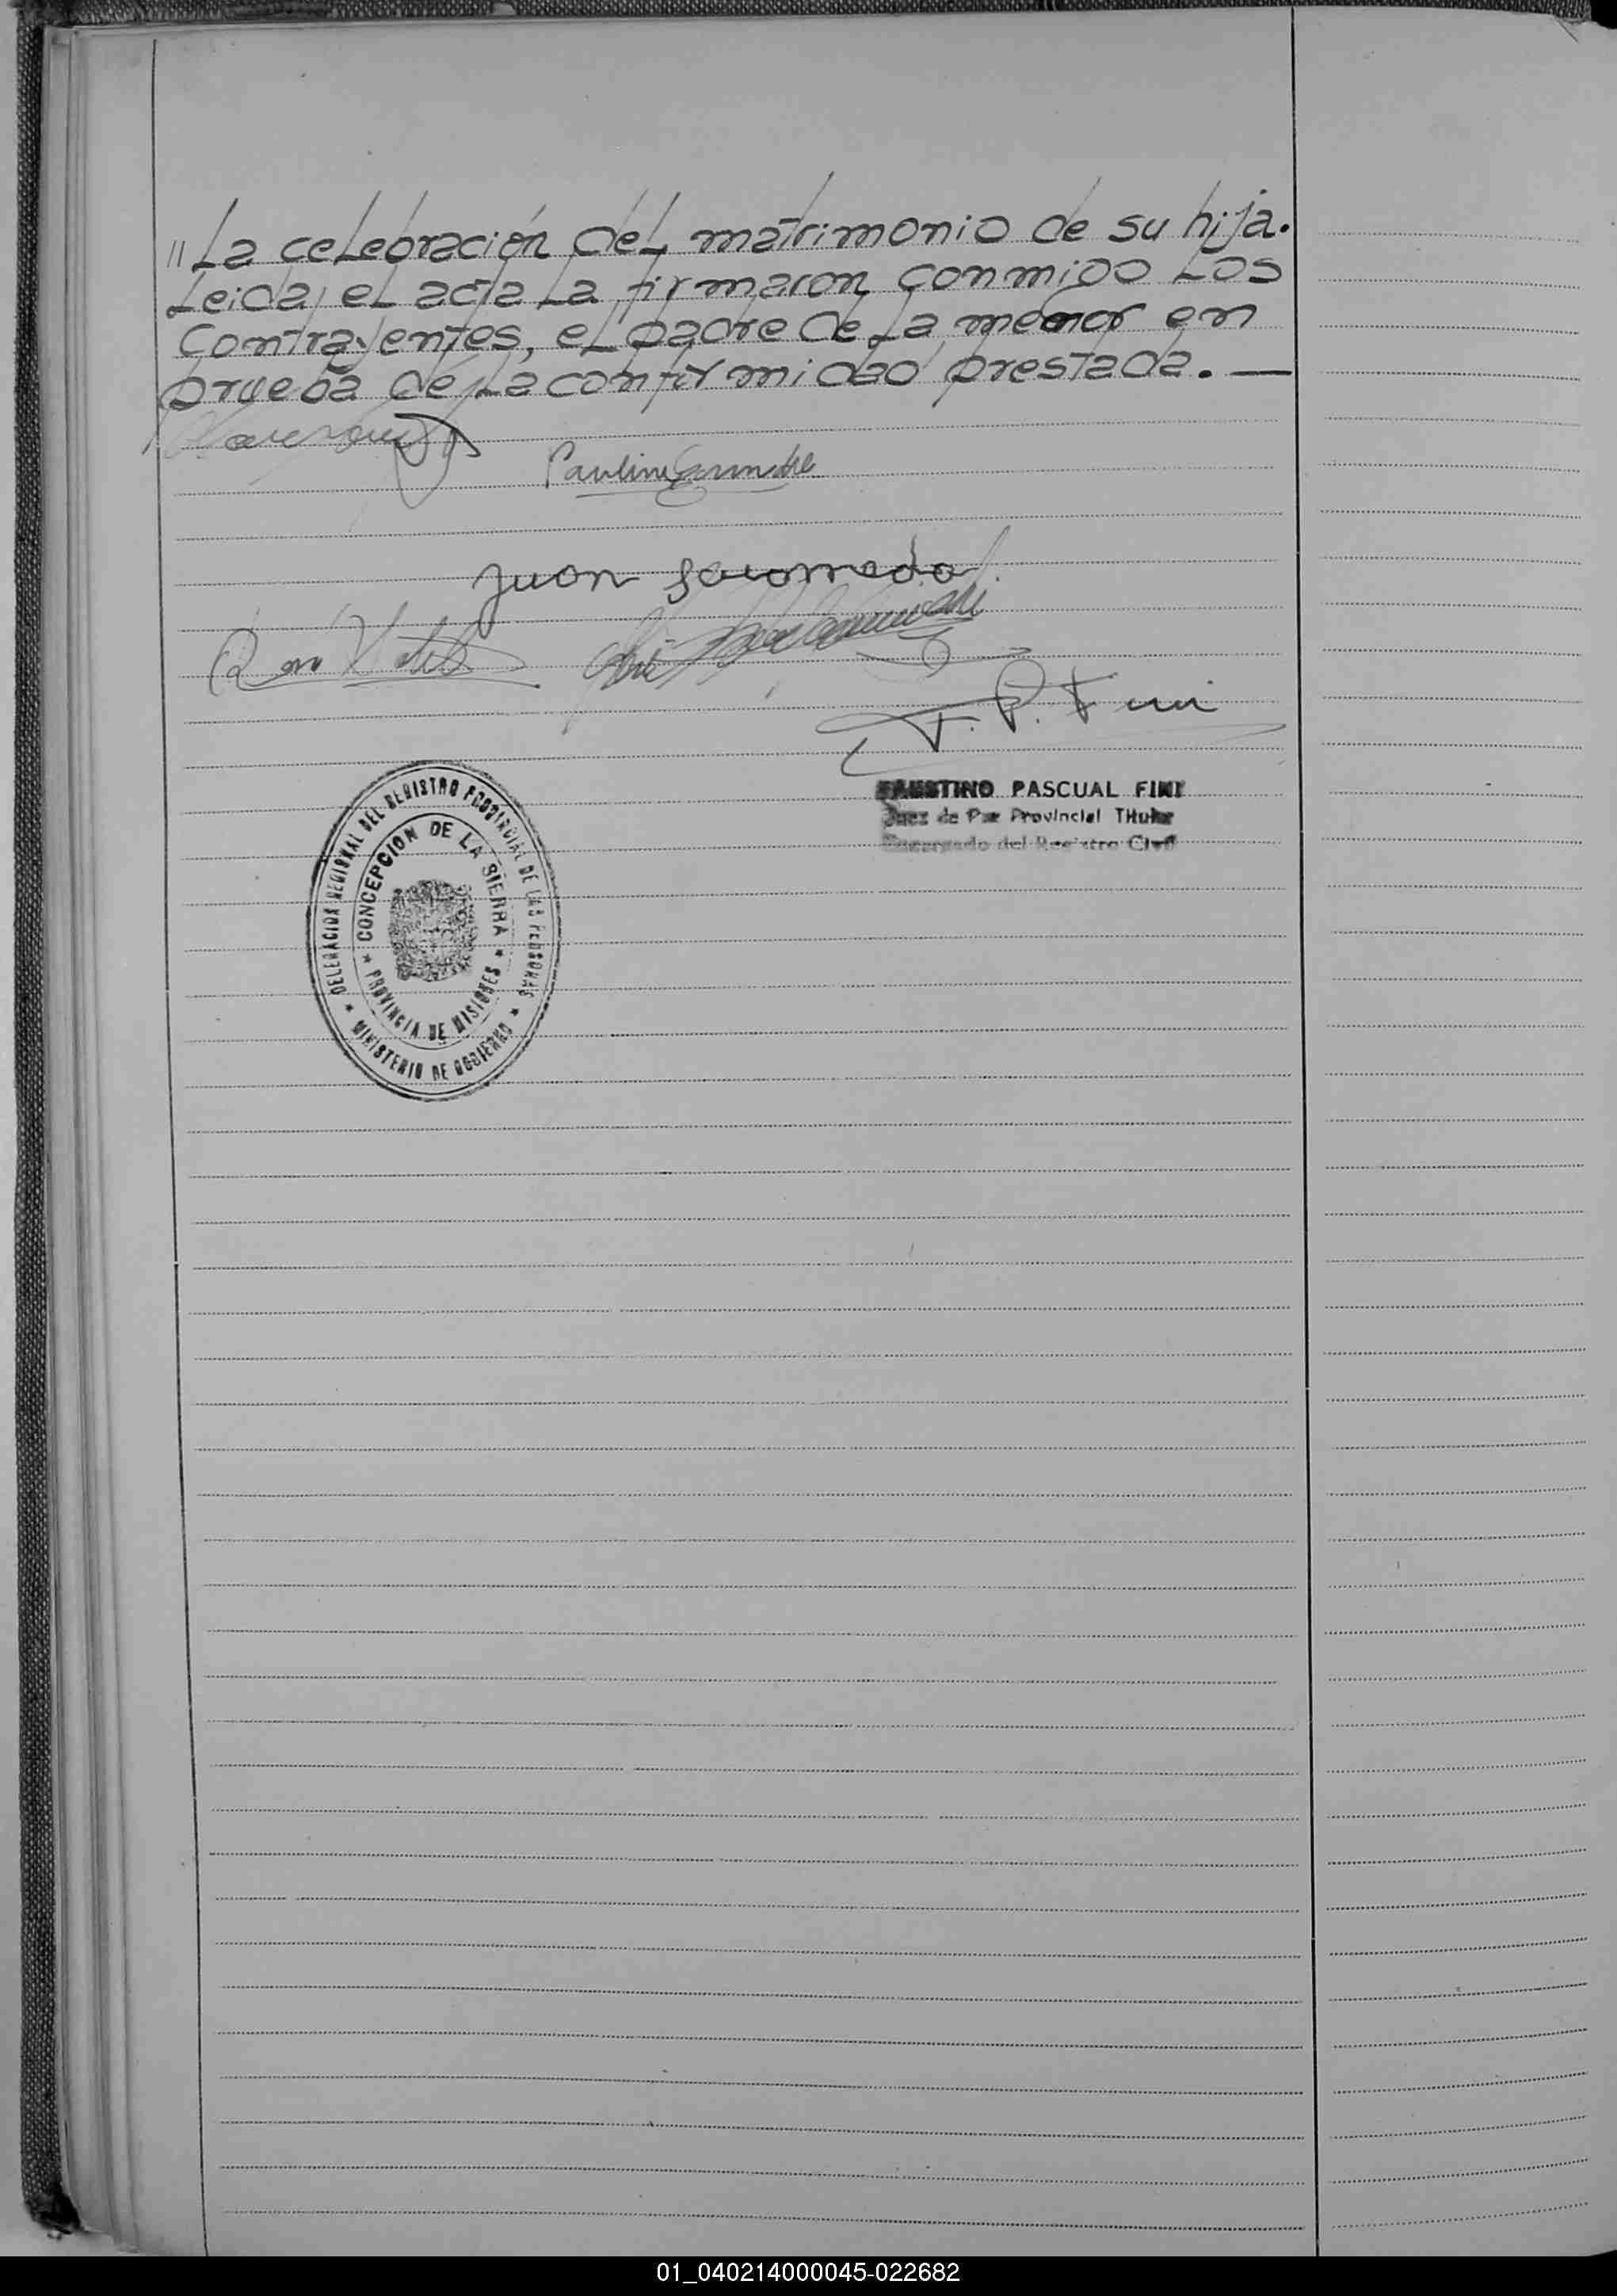 "La celebración del matrimonio de su hija.
Leida el acta la firmaron conmigo los
Contrayentes, el padre de la menor en
prueba de la conformidad prestada. —
Paulina
Juan
F. P. Fini
FAUSTINO PASCUAL FINI
Juez de Paz Provincial Titular
Encargado del Registro Civil
DELEGACION REGIONAL DEL REGISTRO PROVINCIAL DE LAS PERSONAS
CONCEPCION DE LA SIERRA
* PROVINCIA DE MISIONES *
* MINISTERIO DE GOBIERNO *
01_040214000045-022682